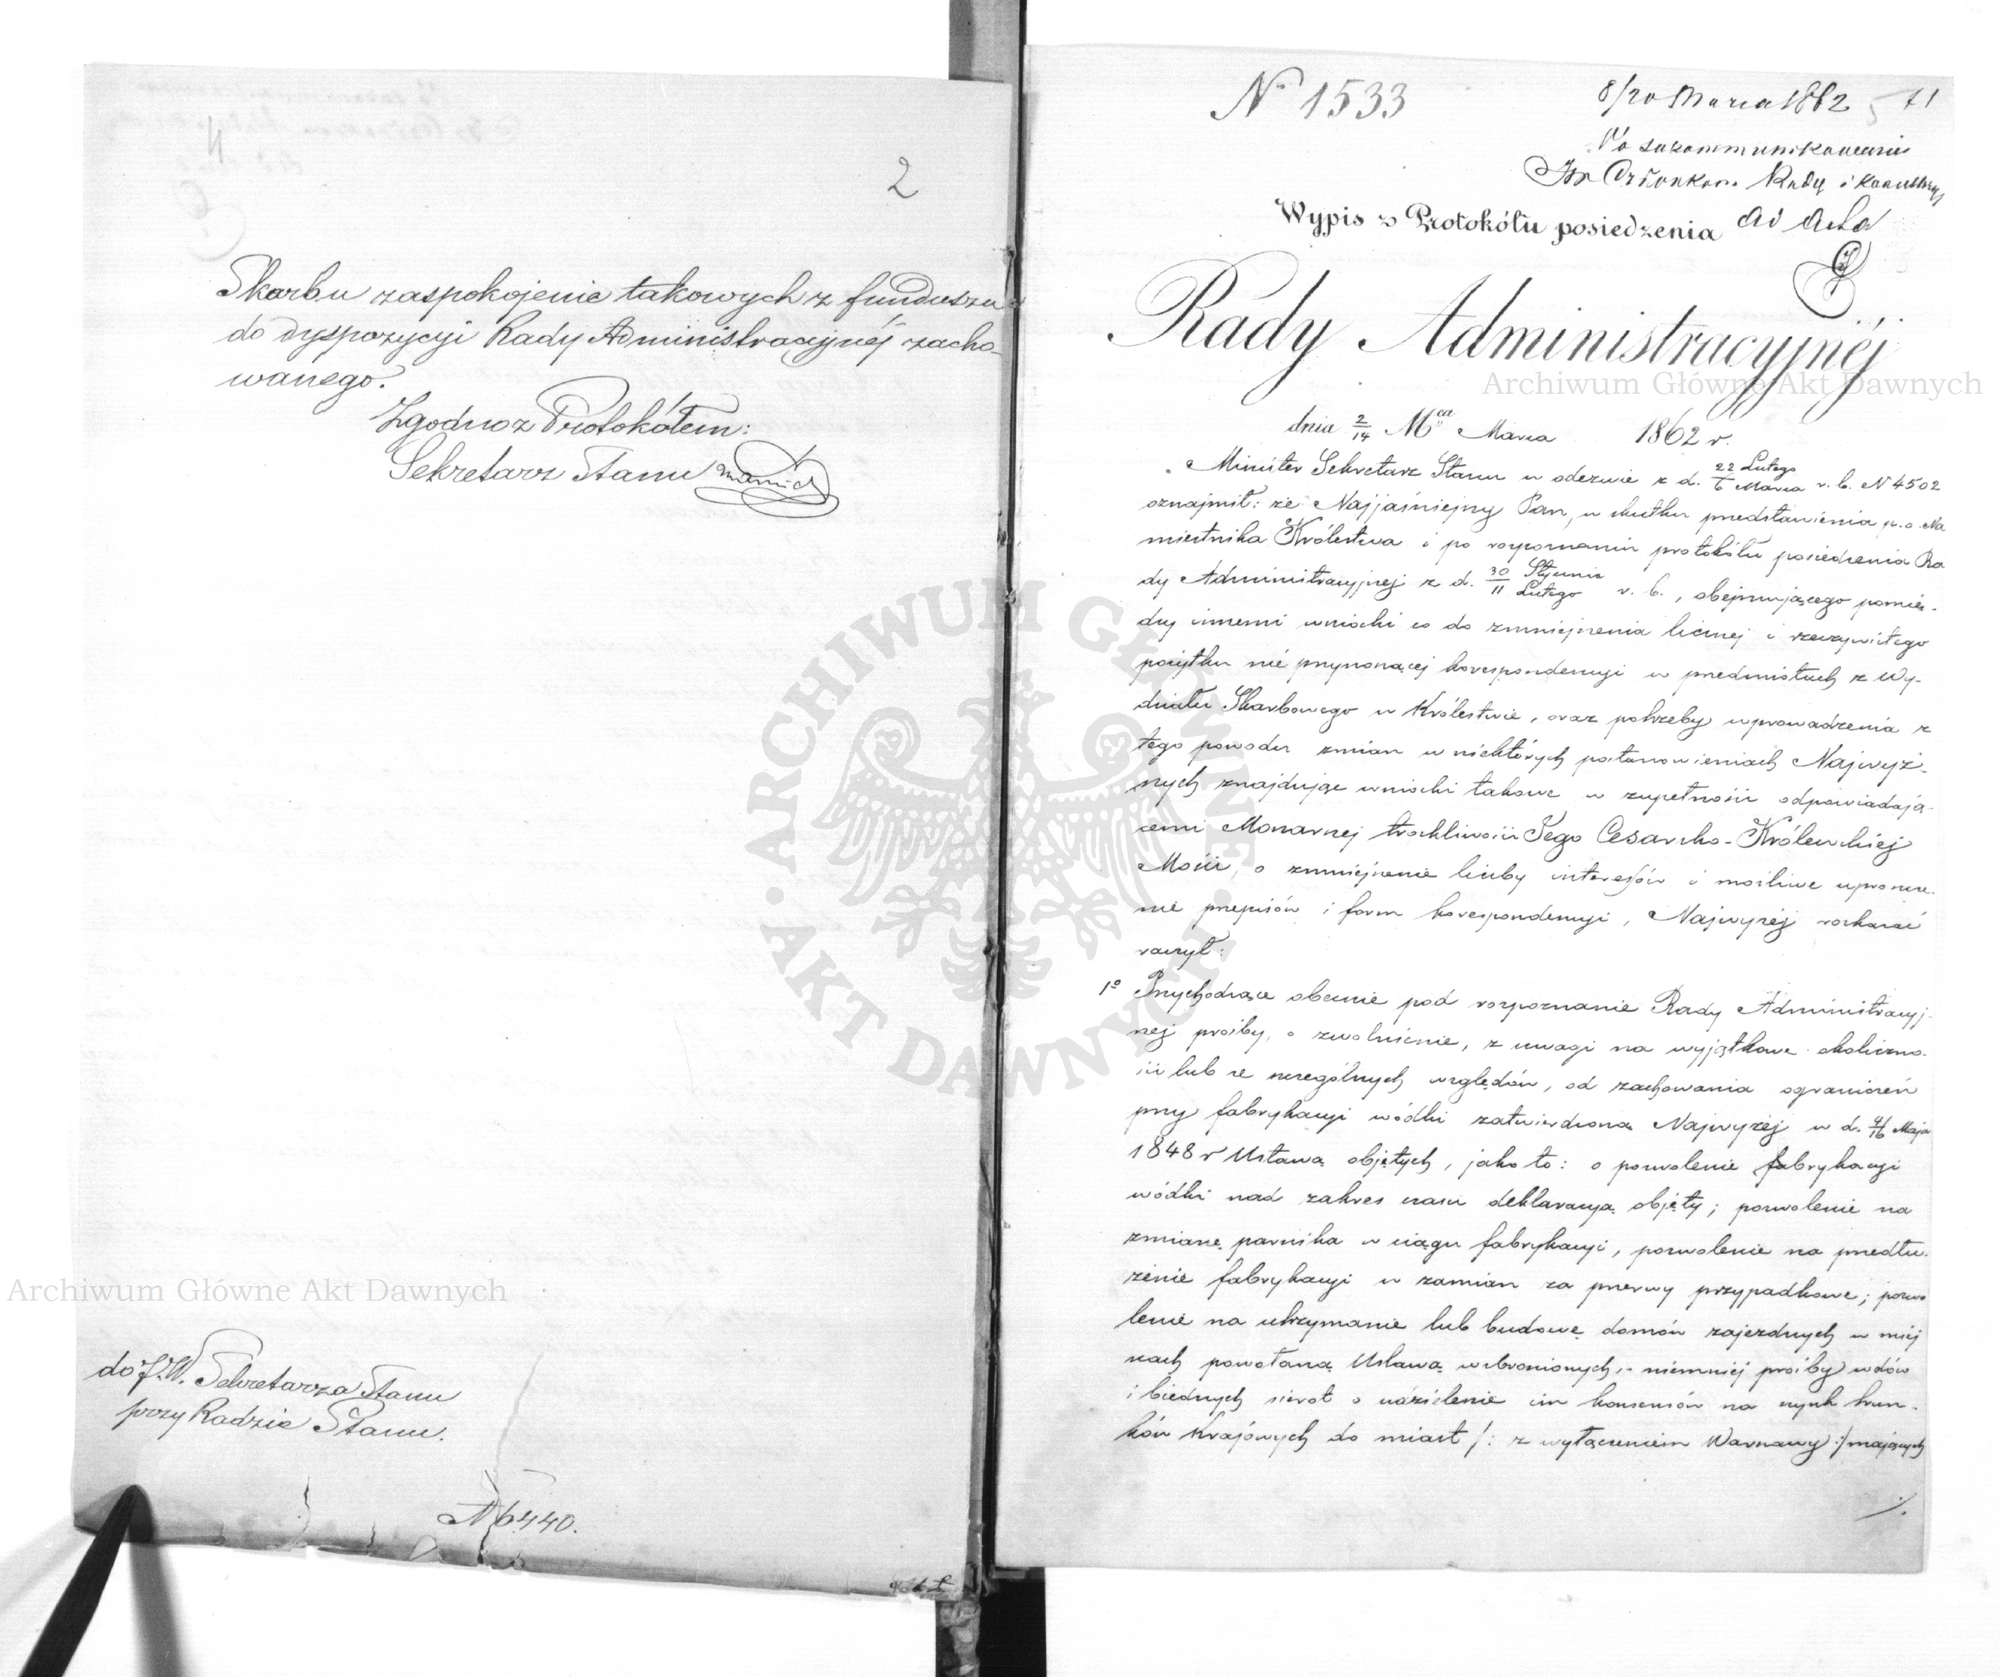 2
Skarbu zaspokojenie takowych z funduszu
do dyspozycyi Rady Administracyjnéj zacho-
wanego.
Zgodno z Protokółem:
Sekretarz Stanu
do J. W. Sekretarza Stanu
przy Radzie Stanu.
N 6440.
Nº 1533
8/20 Marca 1862
71
Po zakommunikowaniu
Członkom Rady i Kancellaryi
ad acta
Wypis z Protokółu posiedzenia
Rady Administracyjnéj
dnia 2/14 Mca Marca 1862 r.
Minister Sekretarz Stanu w odezwie z d. 22 Lutego / 6 Marca r. b. N 4502
oznajmił: że Najjaśniejszy Pan, w skutku przedstawienia p. o. Na
miestnika Królestwa i po rozpoznaniu protokółu posiedzenia Ra
dy Administracyjnej z d. 30 Stycznia / 11 Lutego r. b., obejmującego pomię-
dzy innemi wnioski co do zmniejszenia licznej i rzeczywistego
pożytku nie przynoszącej korespondencyi w przedmiotach z Wy-
działu Skarbowego w Królestwie, oraz potrzeby wprowadzenia z
tego powodu zmian w niektórych postanowieniach Najwyż-
szych znajdując wnioski takowe w zupełności odpowiadają-
cemi Monarszej troskliwości Jego Cesarsko-Królewskiej
Mości, o zmniejszenie liczby interesów i możliwe uproszcze-
nie przepisów i form korespondencyi, Najwyżéj rozkazać
raczył:
1º Przychodzące obecnie pod rozpoznanie Rady Administracyj-
nej prośby, o zwolnienie, z uwagi na wyjątkowe okoliczno-
ści lub ze szczególnych względów, od zachowania ograniczeń
przy fabrykacyi wódki zatwierdzoną Najwyżéj w d. 4/16 Maja
1848 r Ustawą objętych, jako to: o pozwolenie fabrykacyi
wódki nad zakres czasu deklaracyą objęty; pozwolenie na
zmianę parnika w ciągu fabrykacyi, pozwolenie na przedłu-
żenie fabrykacyi w zamian za przerwy przypadkowe; pozwo
lenie na utrzymanie lub budowę domów zajezdnych w miej
scach powołaną Ustawą wzbronionych, - niemniej prośby wdów
i biednych sierot o udzielenie im konsensów na szynk trun-
ków Krajowych do miast /: z wyłączeniem Warszawy :/ mających
./.
Archiwum Główne Akt Dawnych
Archiwum Główne Akt Dawnych
ARCHIWUM GŁÓWNE
AKT DAWNYCH